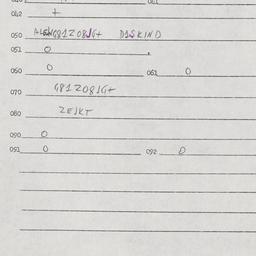 042 +
050 G81Z08JG+ DISKIND
051 0
060 0 062 0
070 G81Z08JG+
080 ZEJKT
090 0
091 0 092 0